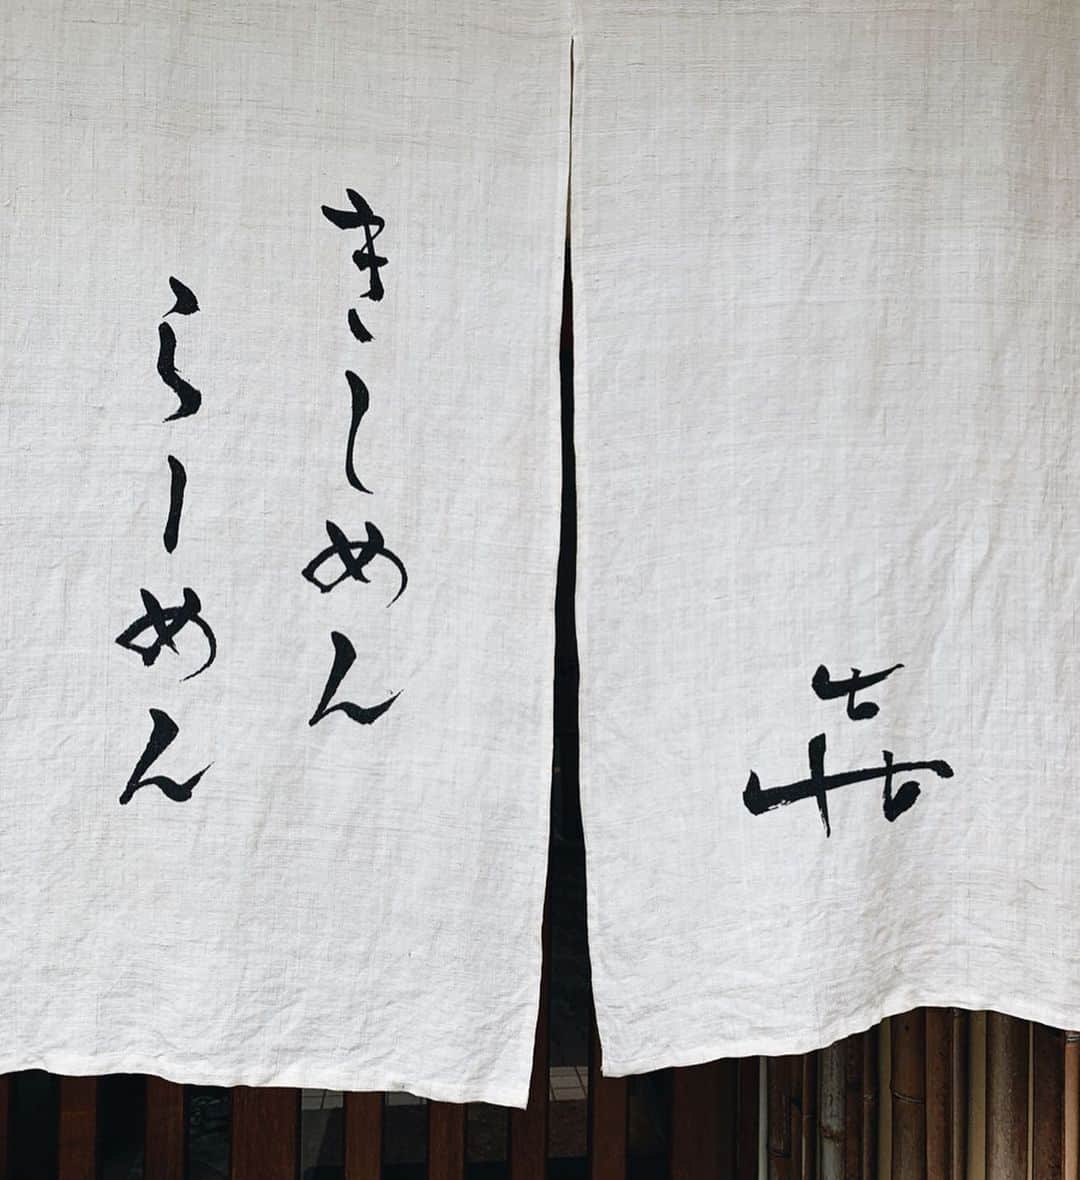 㐂
きしめん
らーめん